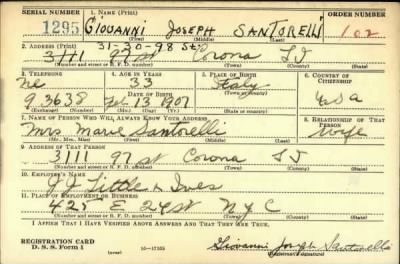 SERIAL NUMBER 1. NAME (Print) ORDER NUMBER
1295 GIOVANNI JOSEPH SANTORELLI 102
(First) (Middle) (Last)
31-30-98 St
2. ADDRESS (Print)
3111 97 st Corona L I
(Number and street or R. F. D. number) (Town) (County) (State)
3. TELEPHONE 4. AGE IN YEARS 5. PLACE OF BIRTH 6. COUNTRY OF CITIZENSHIP
33 Italy
DATE OF BIRTH
9.3638 Feb 13 1907 USA
(Exchange) (Number) (Mo.) (Day) (Yr.) (State or country)
7. NAME OF PERSON WHO WILL ALWAYS KNOW YOUR ADDRESS 8. RELATIONSHIP OF THAT PERSON
Mrs. Marie Santorelli Wife
(Mr., Mrs., Miss) (First) (Middle) (Last)
9. ADDRESS OF THAT PERSON
3111 97 st Corona L I
(Number and street or R. F. D. number) (Town) (County) (State)
10. EMPLOYER'S NAME
J J Little & Ives
11. PLACE OF EMPLOYMENT OR BUSINESS
425 E 24 st N Y C
(Number and street or R. F. D. number) (Town) (County) (State)
I AFFIRM THAT I HAVE VERIFIED ABOVE ANSWERS AND THAT THEY ARE TRUE.
REGISTRATION CARD
D. S. S. Form 1
Giovanni Joseph Santorelli
(Registrant's signature)